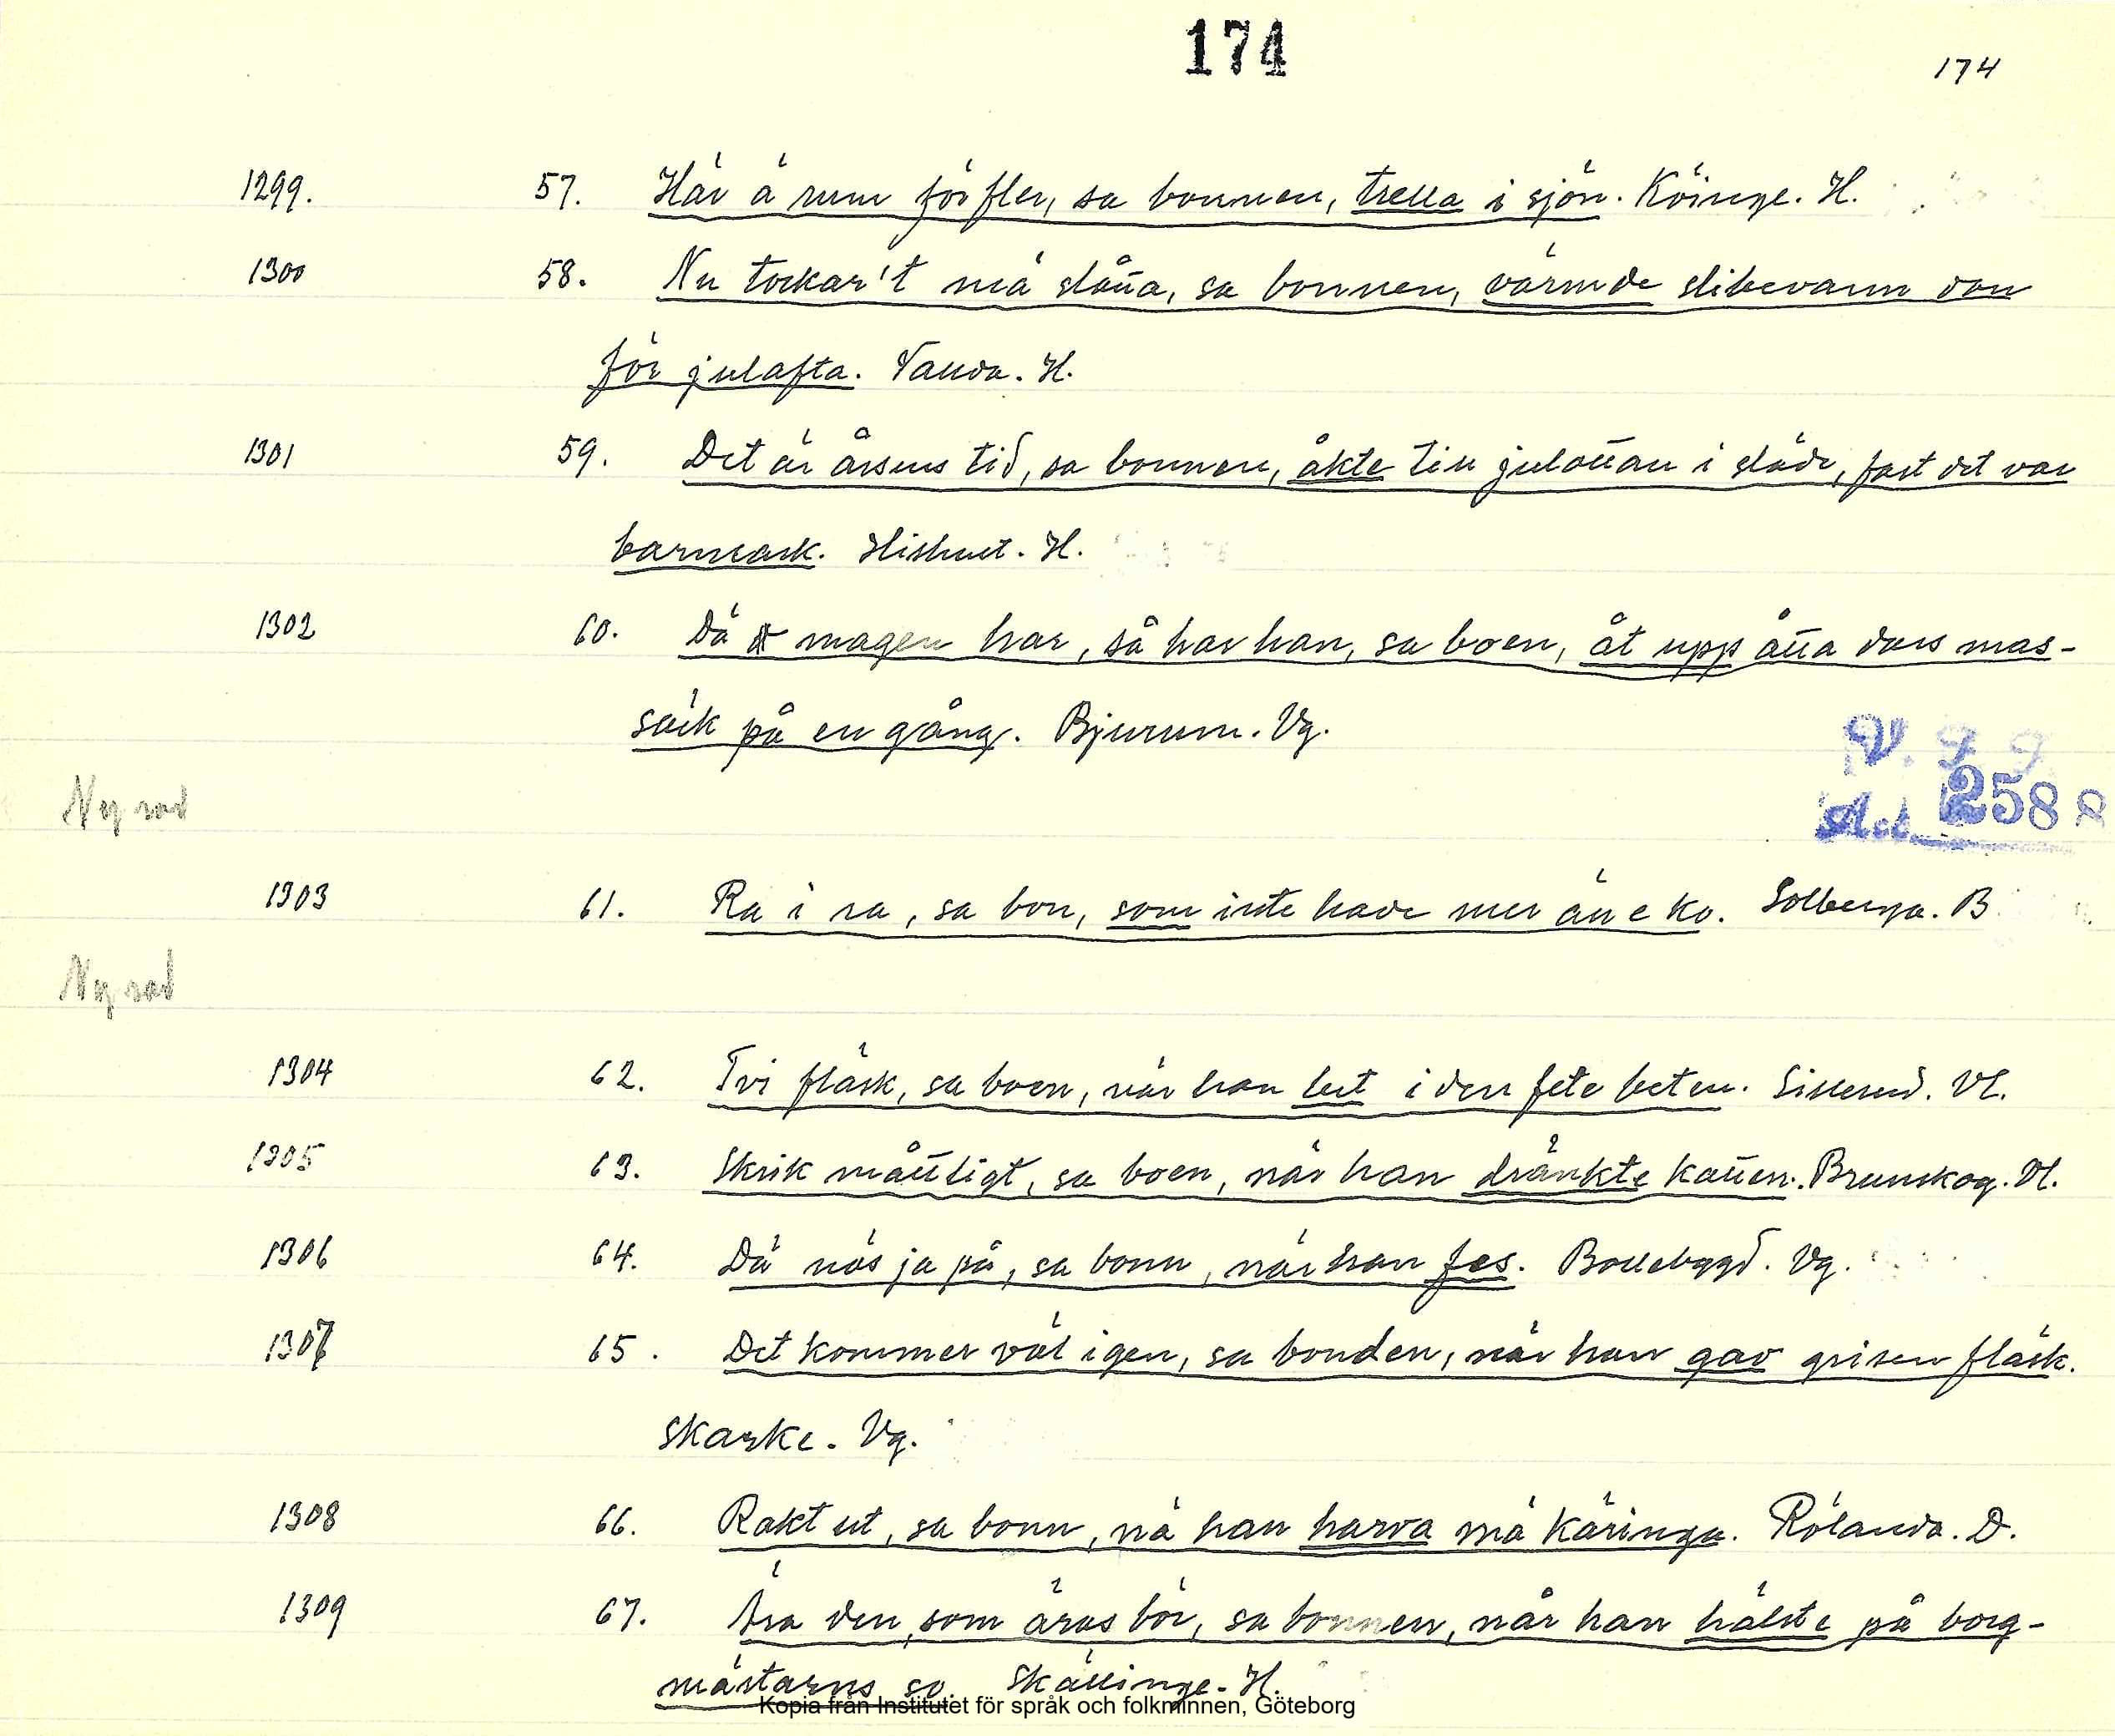 174
174
1299. 57. Här ä rum för fler, sa bonnen, trella i sjön. Köinge. H.
1300 58. Nu tockar't mä slåtta, sa bonnen, värmde slibevann dan
för julafta. Vanda. H.
1301 59. Det är årsens tid, sa bonnen, åkte till julottan i släde, fast det var
barmark. Hishult. H.
1302 60. Dä magen har, så har han, sa boen, åt upp åtta dars mas-
säck på en gång. Bjurum. Vg.
Ny rad
V. F. F.
Ack. 2588
1303 61. Ra i ra, sa bon, som inte hade mer än e ko. Solberga. B
Ny rad
1304 62. Tvi fläsk, sa boen, när han bet i den fete beten. Sillerud. Vl.
1305 63. Skrik måttligt, sa boen, när han dränkte katten. Brunskog. Vl.
1306 64. Dä nös ja på, sa bonn, när han fes. Bollebygd. Vg.
1307 65. Det kommer väl igen, sa bonden, när han gav grisen fläsk.
Skarke. Vg.
1308 66. Rakt ut, sa bonn, nä han harva mä käringa. Rölanda. D.
1309 67. Ära den, som äras bör, sa bonnen, når han hälste på borg-
mästarns so. Skällinge. H.
Kopia från Institutet för språk och folkminnen, Göteborg